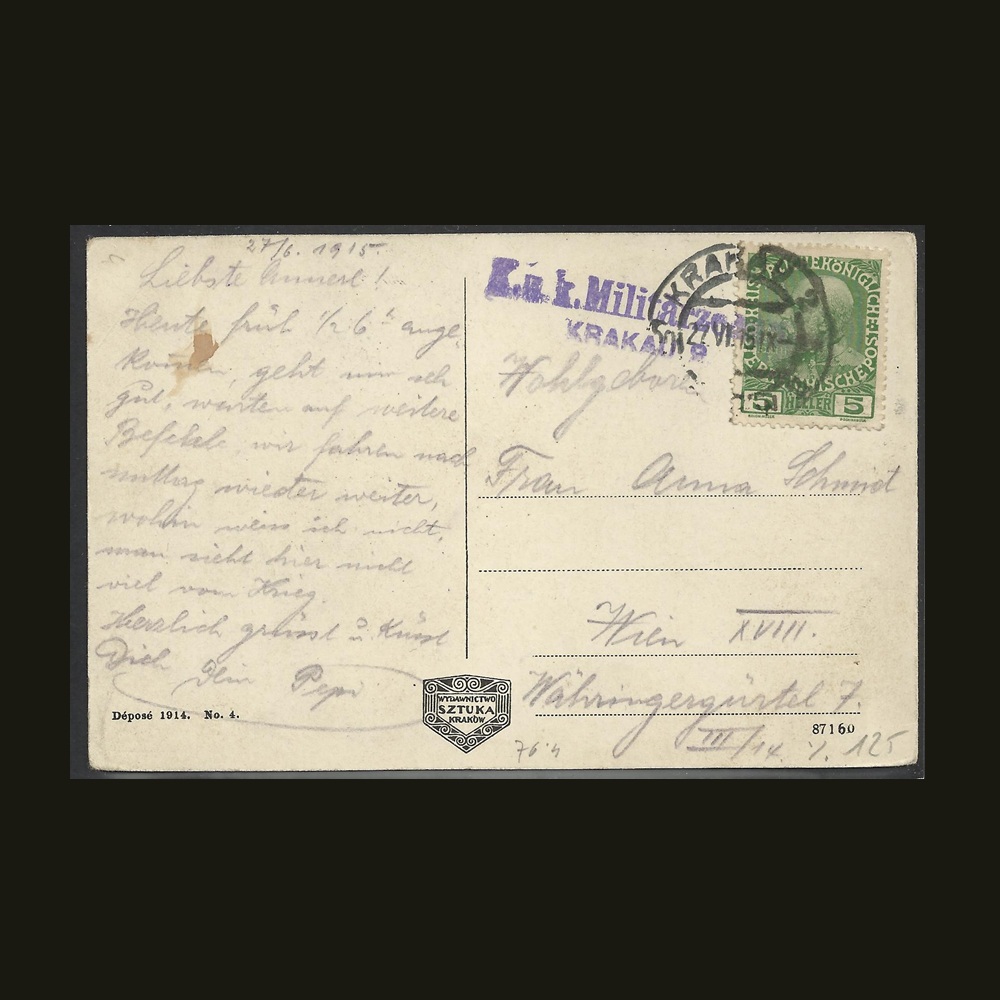 27/6. 1915.
Liebste Annerl!
Heute früh 1/2 6 h ange
komen, geht mir sehr
Gut, warten auf weitere
Befehle, wir fahren nach
mittag wieder weiter,
wohin weiss ich nicht,
man sieht hier nicht
viel vom Krieg.
Herzlich grüsst u. Küsst
Dich Dein Pepi
Déposé 1914. No. 4.
WYDAWNICTWO
SZTUKA
KRAKÓW
K.u.k. Militärzensur
KRAKAU 2
KRAKAU
27 VI 15 IX
5 HELLER 5
Wohlgeboren
Frau Anna Schmid
Wien XVIII.
Währingergürtel 7.
III/14.
87160
76.4
125